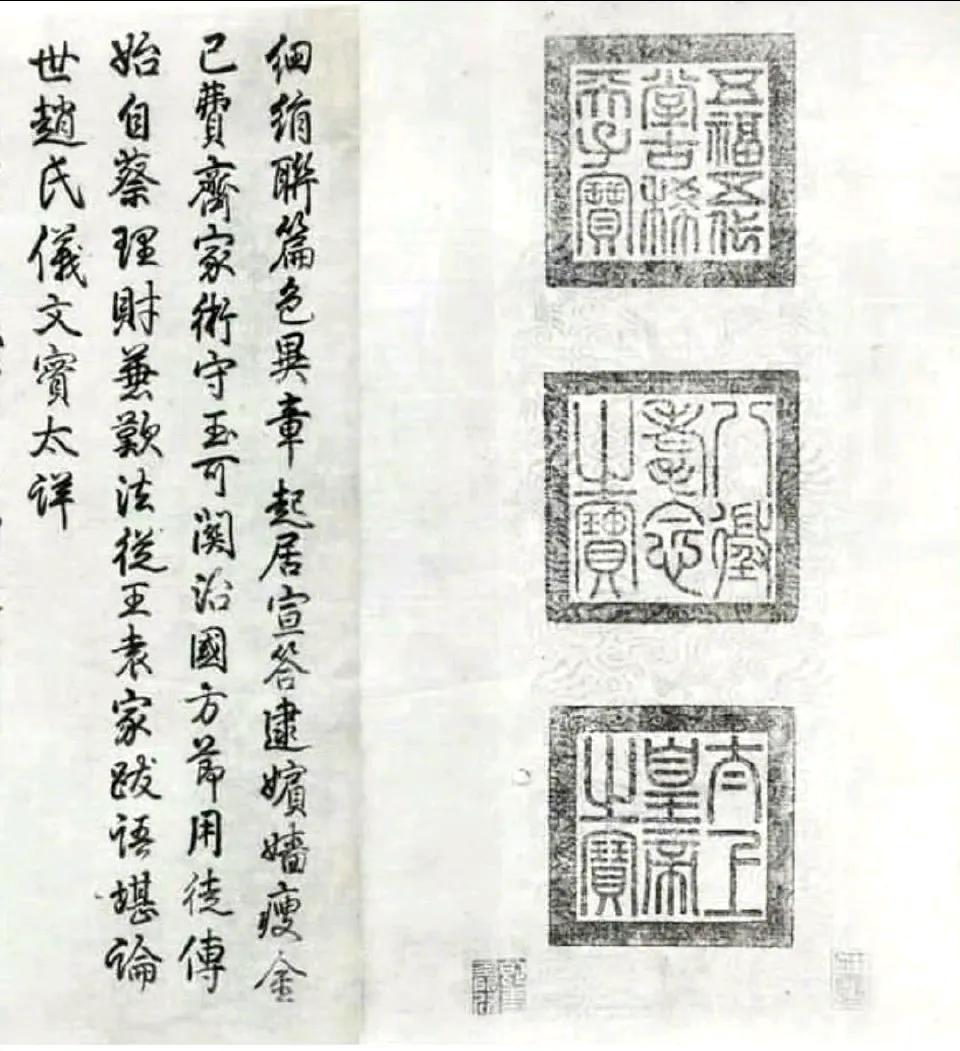 五福五代
堂古稀
天子寶
八徵
耄念
之寶
太上
皇帝
之寶
細絹聯篇色異章起居宣答逮嬪嬙瘦金
已費齊家術守玉可關治國方節用徒傳
始自蔡理財兼歎法從王袁家跋語堪論
世趙氏儀文實太詳